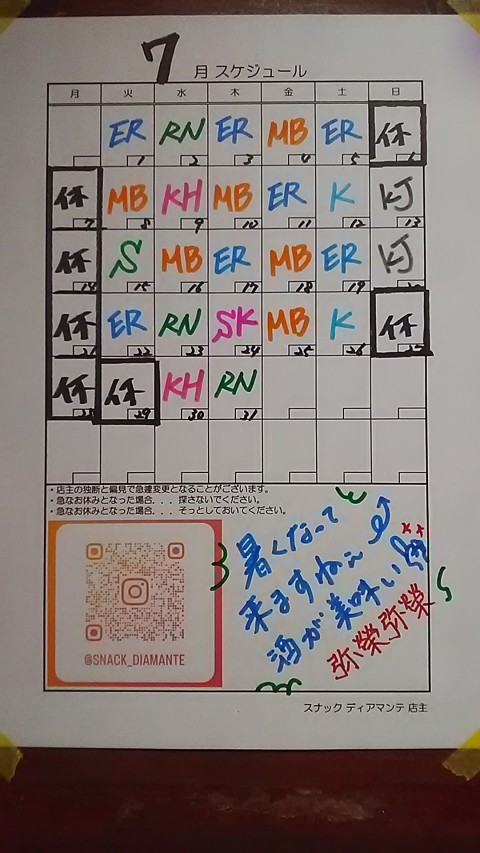 7月 スケジュール
月 火 水 木 金 土 日
ER RN ER MB ER 休
1 2 3 4 5 6
休 MB KH MB ER K KJ
7 8 9 10 11 12 13
休 S MB ER MB ER KJ
14 15 16 17 18 19 20
休 ER RN SK MB K 休
21 22 23 24 25 26 27
休 休 KH RN
28 29 30 31
・店主の独断と偏見で急遽変更となることがございます。
・急なお休みとなった場合．．．探さないでください。
・急なお休みとなった場合．．．そっとしておいてください。
@SNACK_DIAMANTE
暑くなって
来ますねぇ
酒が美味い
弥榮弥榮
スナック ディアマンテ 店主